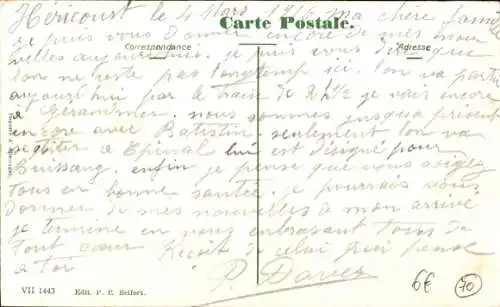 Héricourt le 4 Mars 1916 ma chere famille
Carte Postale.
je puis vous donner encore de mes nou
Correspondance
Adresse
velles aujourd'hui. je puis vous dire que
lon ne reste pas longtemp ici. lon va partir
aujourd'hui par le train de 2 h ½ je vais encore
a Gerardmer. nous sommes jusqua présent
encore avec Batistin. seulement lon va
a Epinal lui est désigné pour
Bussang. enfin je pense que vous soigez
tous en bonne santée. je pourrais vous
donner de mes nouvelles a mon arrivé
je termine en vous enbrassant tous de
tout cœur Recoit de celui qui pense
a toi
P. Daver
VII 1443 Edit. P. P. Belfort.
6€
70